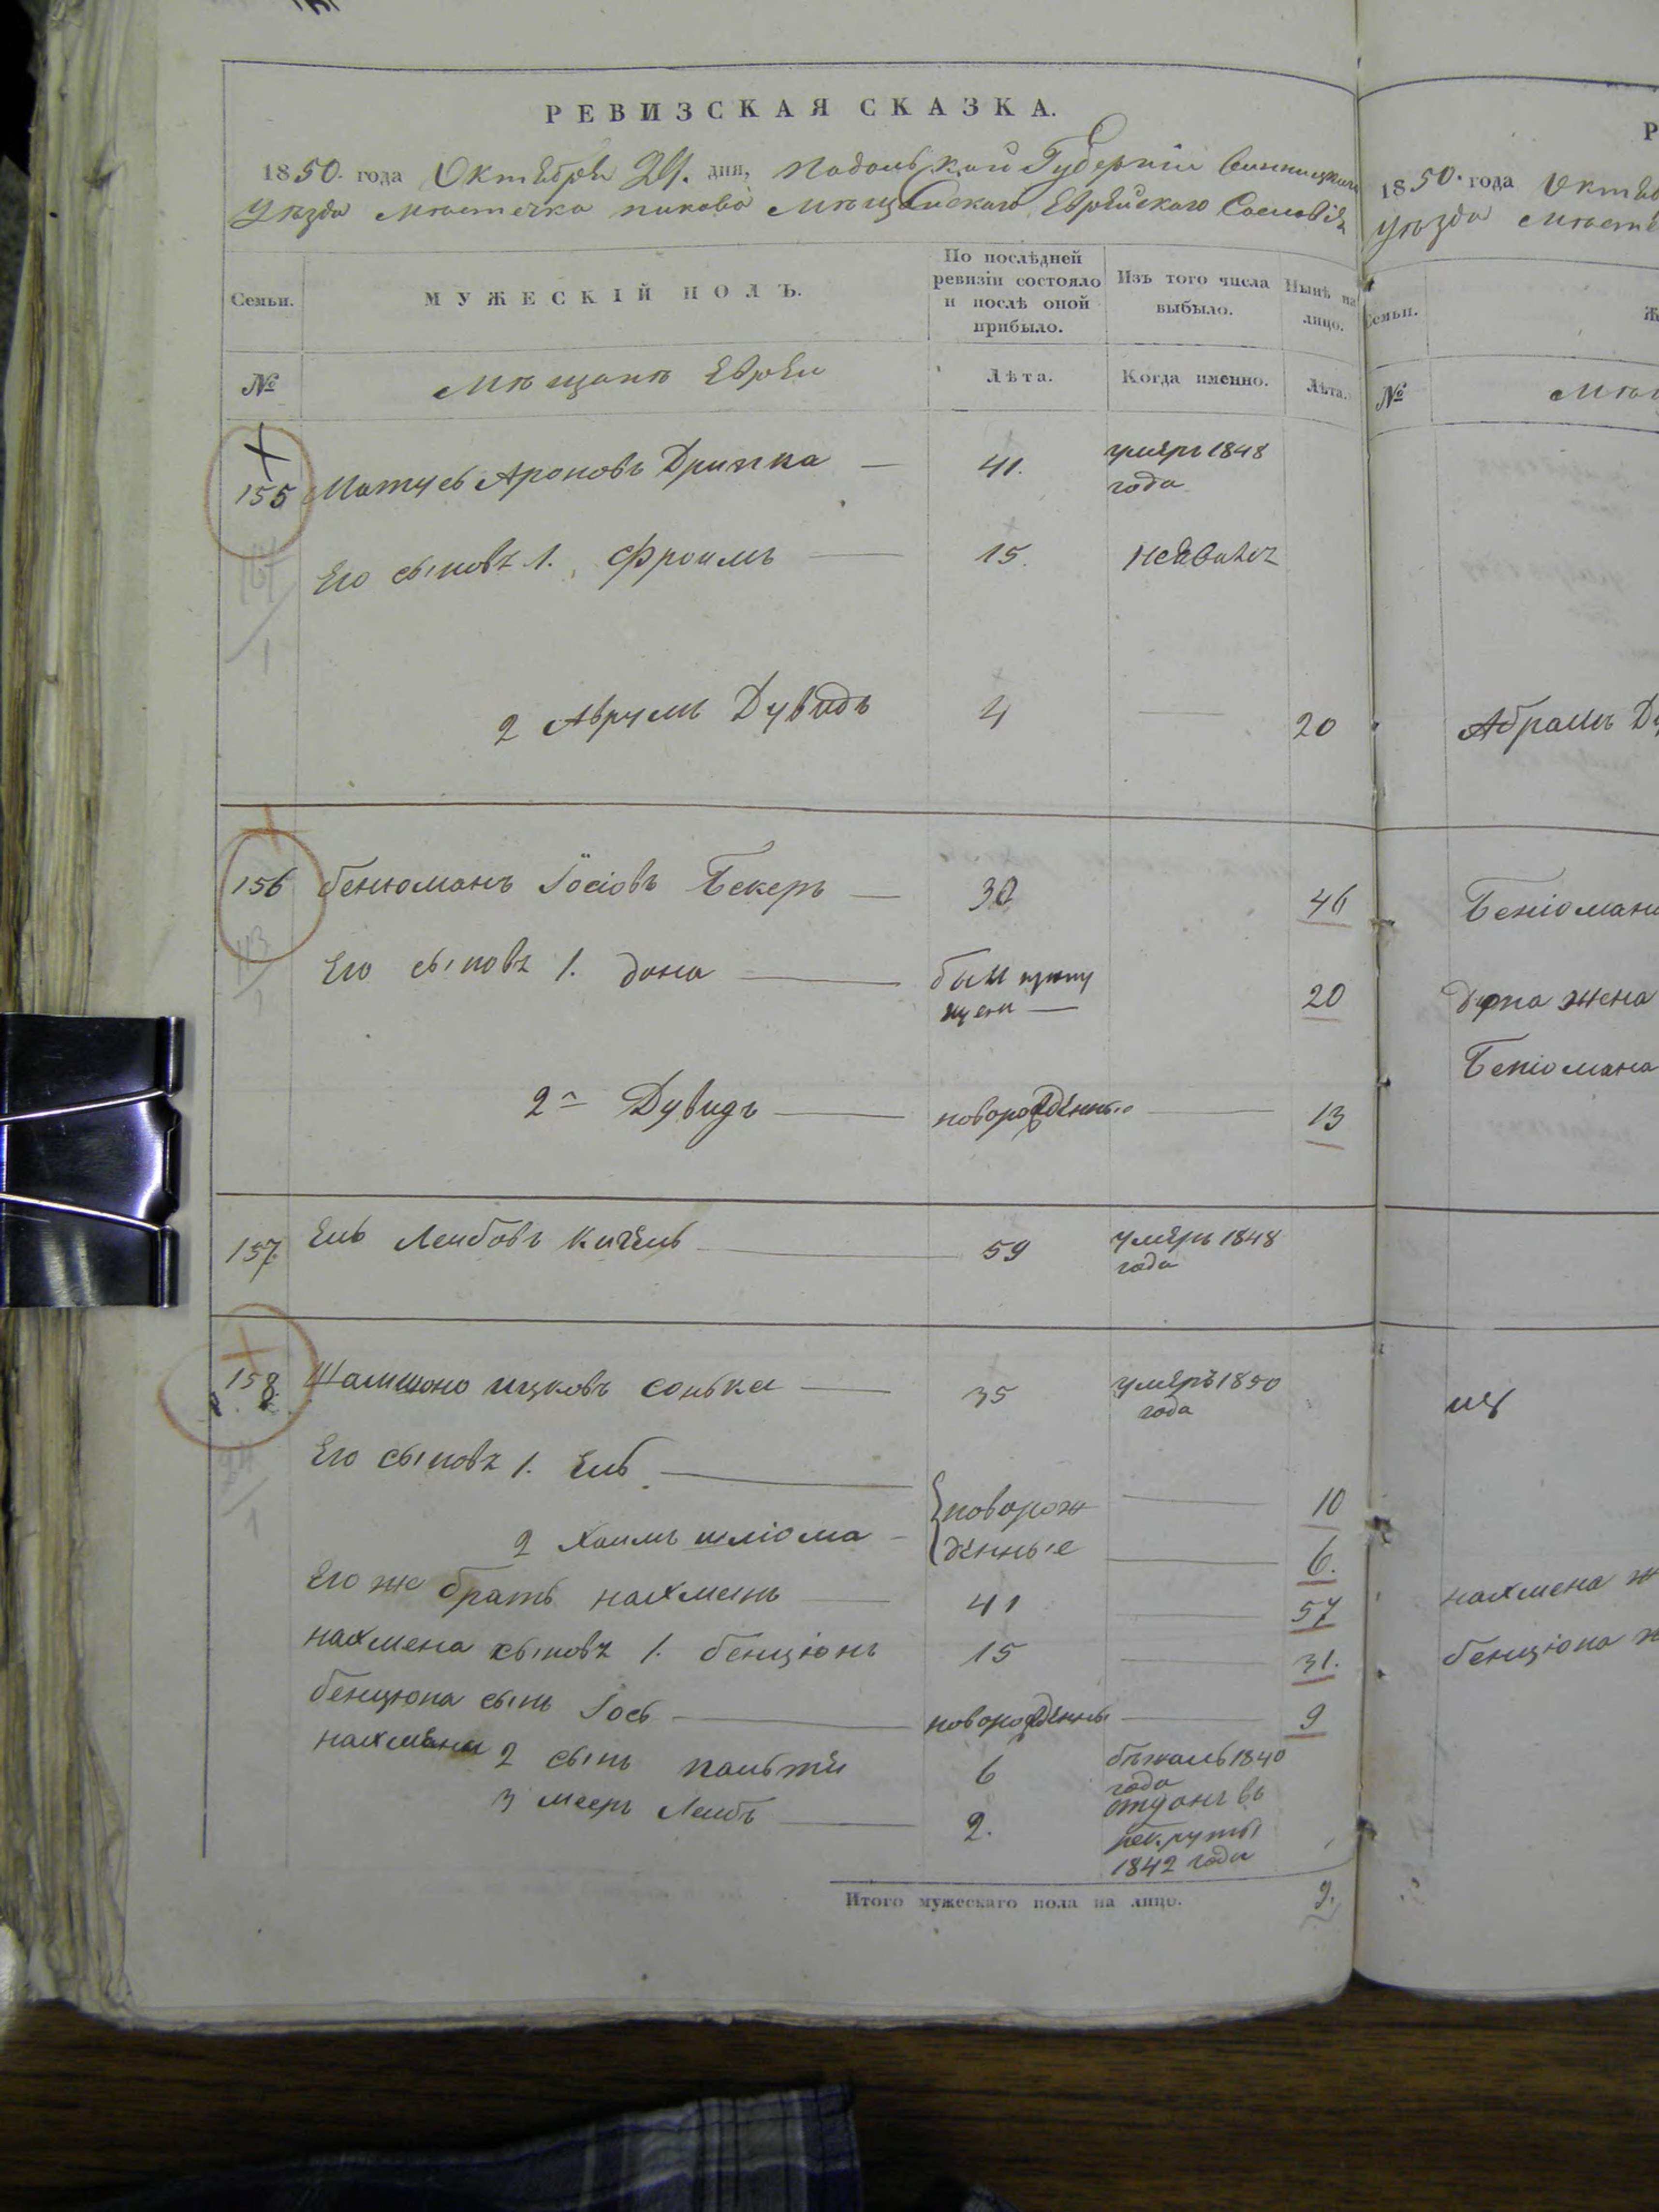 РЕВИЗСКАЯ СКАЗКА.
1850. года Октября дня, Подольской Губерніи Винницкаго
Уѣзда Мѣстечка Пикова Мѣщанскаго Еврейскаго Сословія
Семьи.
МУЖЕСКІЙ ПОЛЪ.
По послѣдней ревизіи состояло и послѣ оной прибыло.
Изъ того числа выбыло.
Нынѣ на лицо.
№
Мѣщане Евреи
Лѣта.
Когда именно.
Лѣта.
155 Матусь Ароновъ — 41. умеръ 1848
года
Его сыновъ 1. Фроимъ — 15. неявился
2 Аврумъ Дувидъ 4 — 20
156 Бенюманъ Іосіовъ Бекеръ — 30 46
Его сыновъ 1. дона — былъ пропу
щенъ — 20
2й Дувидъ — новорожденный — 13
157 Ель Лейбовъ Кигель — 59 умеръ 1848
года
158 Шамшоно ицковъ сонька — 35 умеръ 1850
года
Его сыновъ 1. Ель — новорож — 10
2 Хаимъ шліома — денные — 6.
Его же братъ нахменъ — 41 — 57
нахмена сыновъ 1. бенціонъ 15 — 31.
бенціона сынъ Іось — новорожденный — 9
нахмена 2 сынъ пальтій 6 бѣжалъ 1840
года
3 мееръ Лейбъ — 2. отданъ въ
рекруты
1842 года
Итого мужескаго пола на лицо. 9.
Р
1850. года Октяб
Уѣзда Мѣсте
Семьи.
Ж
№
Мѣщ
Абрамъ Ду
Беніомана
дона жена
Беніомана
нахмена ж
бенціона ж